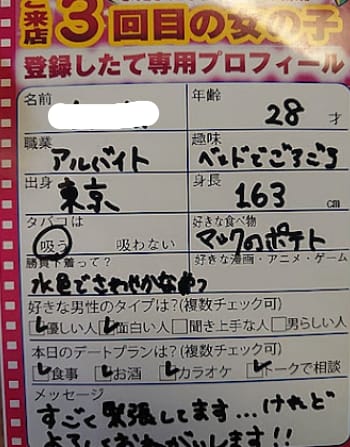 ご来店3回目の女の子
登録したて専用プロフィール
名前 年齢 28才
職業 アルバイト 趣味 ベッドでごろごろ
出身 東京 身長 163cm
タバコは 吸う 吸わない 好きな食べ物 マックのポテト
勝負下着って? 水色でさわやかなやつ 好きな漫画・アニメ・ゲーム
好きな男性のタイプは?(複数チェック可)
優しい人 面白い人 聞き上手な人 男らしい人
本日のデートプランは?(複数チェック可)
食事 お酒 カラオケ トークで相談
メッセージ
すごく緊張してます...けれど
よろしくおねがいします!!